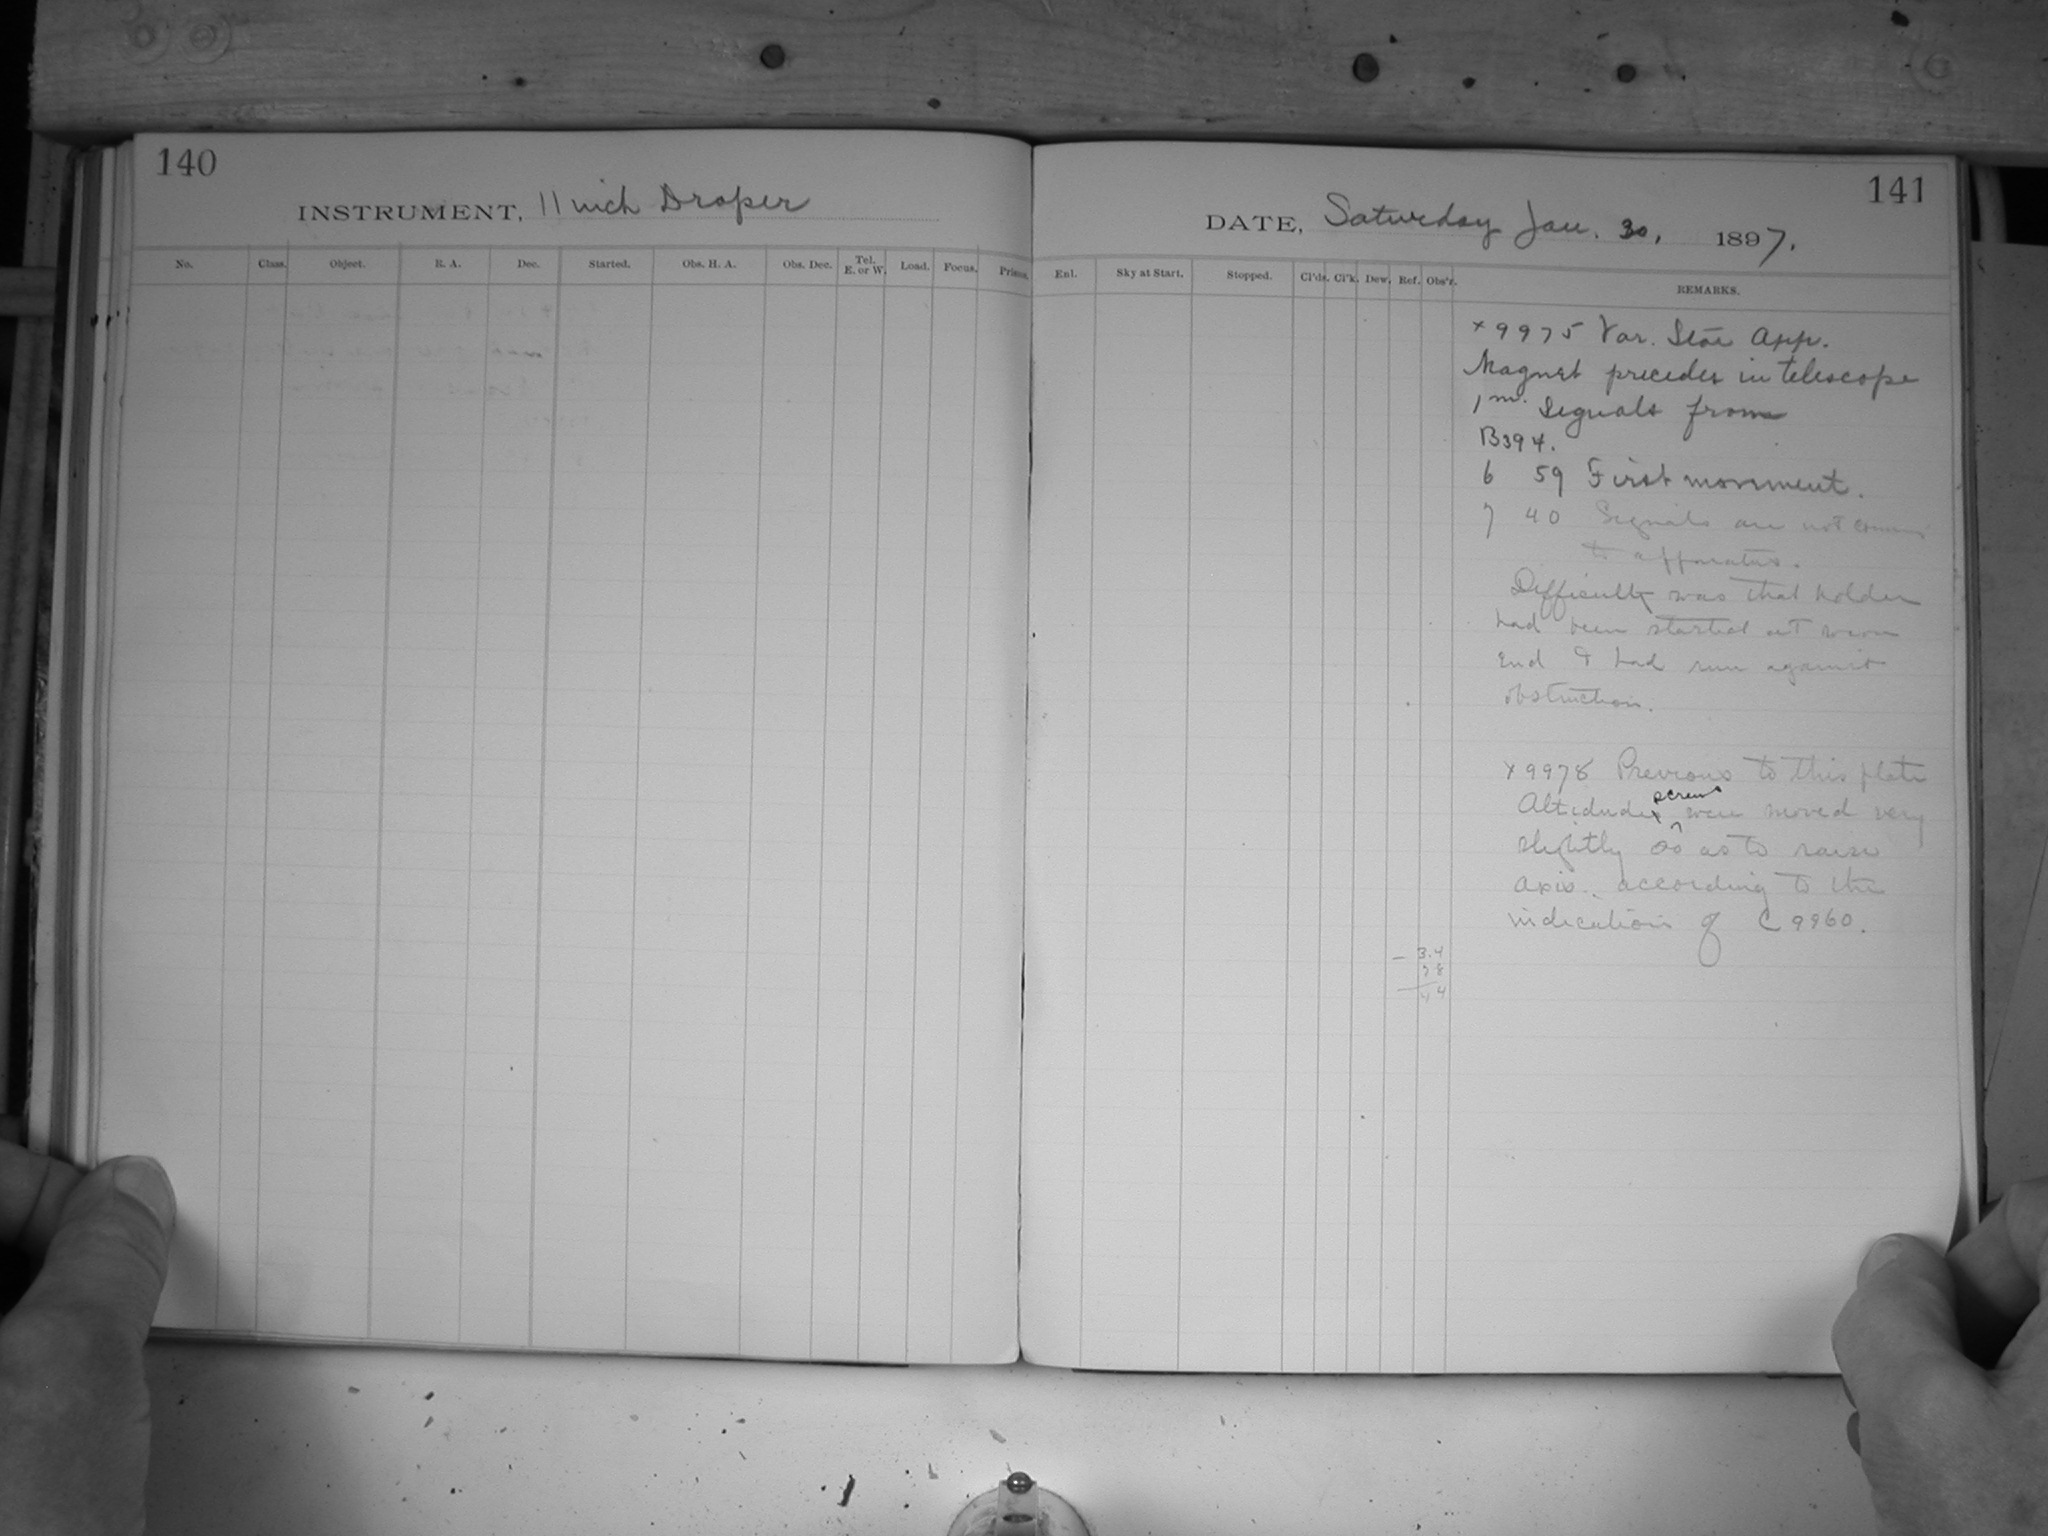 140
INSTRUMENT, 11 inch Draper
No. Class. Object. R. A. Dec. Started. Obs. H. A. Obs. Dec. Tel. E. or W. Load. Focus. Prisms.
141
DATE, Saturday Jan. 30, 1897.
Enl. Sky at Start. Stopped. Cl'ds. Cl'k. Dew. Ref. Obs'r. REMARKS.
x 9975 Var. Star App.
Magnet precedes in telescope
1m. Signals from
B394.
6 59 First movement.
7 40 Signals are not coming
to apparatus.
Difficulty was that holder
had been started at
end & had run against
obstruction.
x 9978 Previous to this plate
Altidude screws were moved very
slightly so as to raise
axis. according to the
indication of C 9960.
- 3.4
78
44